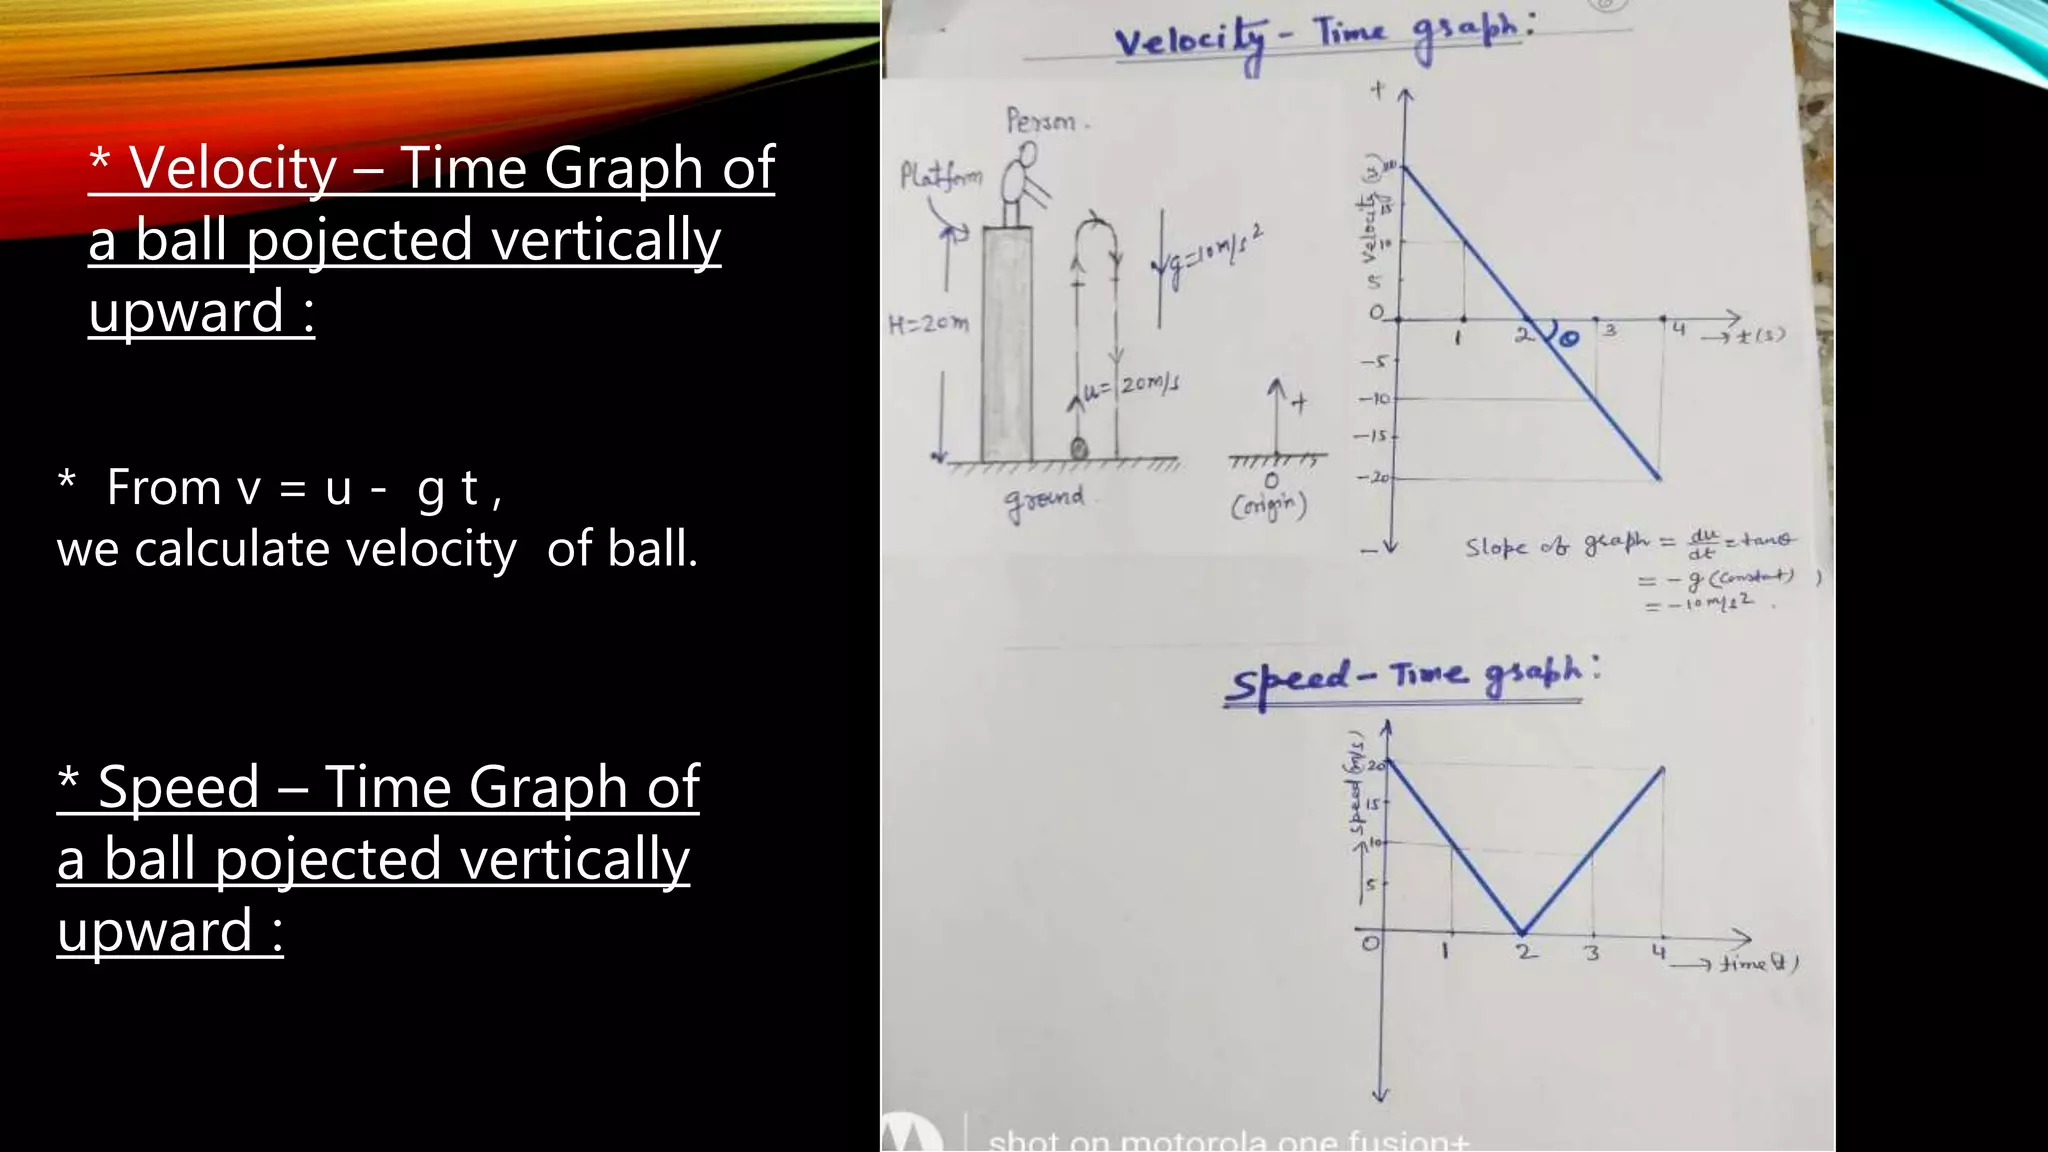 * Velocity – Time Graph of
a ball pojected vertically
upward :
* From v = u - g t ,
we calculate velocity of ball.
* Speed – Time Graph of
a ball pojected vertically
upward :
Velocity - Time graph :
Person .
Platform
H = 20m
g = 10 m/s2
u = 20m/s
ground .
+
O
(origin)
+
Velocity
15
10
5
O
-5
-10
-15
-20
-
1
2
θ
3
4
→ t (s)
Slope of graph = du/dt = tanθ
= - g (constant)
= - 10 m/s2 .
Speed - Time graph :
Speed (m/s)
20
15
10
5
O
1
2
3
4
→ time (t)
shot on motorola one fusion+